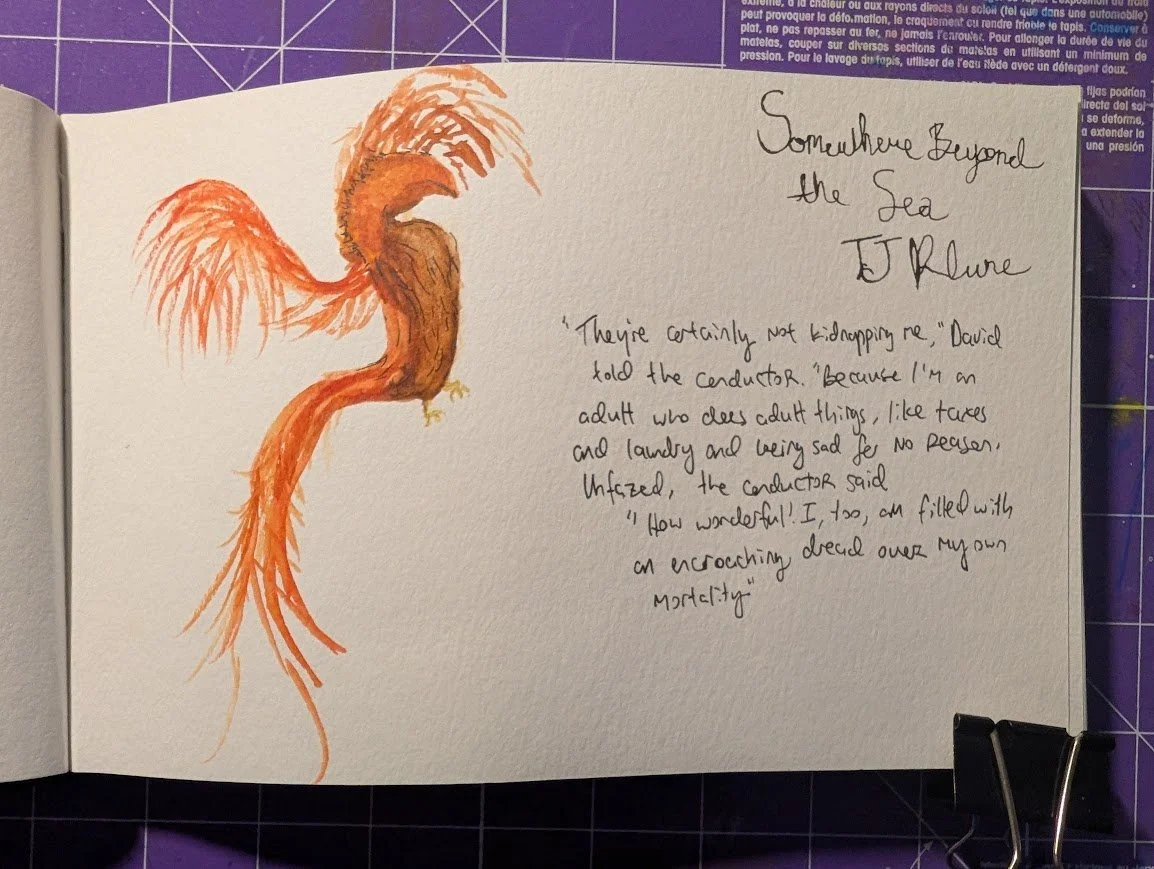 extrême, à la chaleur ou aux rayons directs du soleil (tel que dans une automobile)
peut provoquer la défo.mation, le craquement ou rendre friable le tapis. Conserver à
plat, ne pas repasser au fer, ne jamais l'enrouler. Pour allonger la durée de vie du
matelas, couper sur diverses sections du matelas en utilisant un minimum de
pression. Pour le lavage du tapis, utiliser de l'eau tiède avec un détergent doux.
fijas podrían
directa del sol
se deforme,
a extender la
una presión
Somewhere Beyond
the Sea
TJ Klune
"They're certainly not kidnapping me," David
told the conductor. "Because I'm an
adult who does adult things, like taxes
and laundry and being sad for no reason.
Unfazed, the conductor said
"How wonderful! I, too, am filled with
an encroaching dread over my own
mortality"